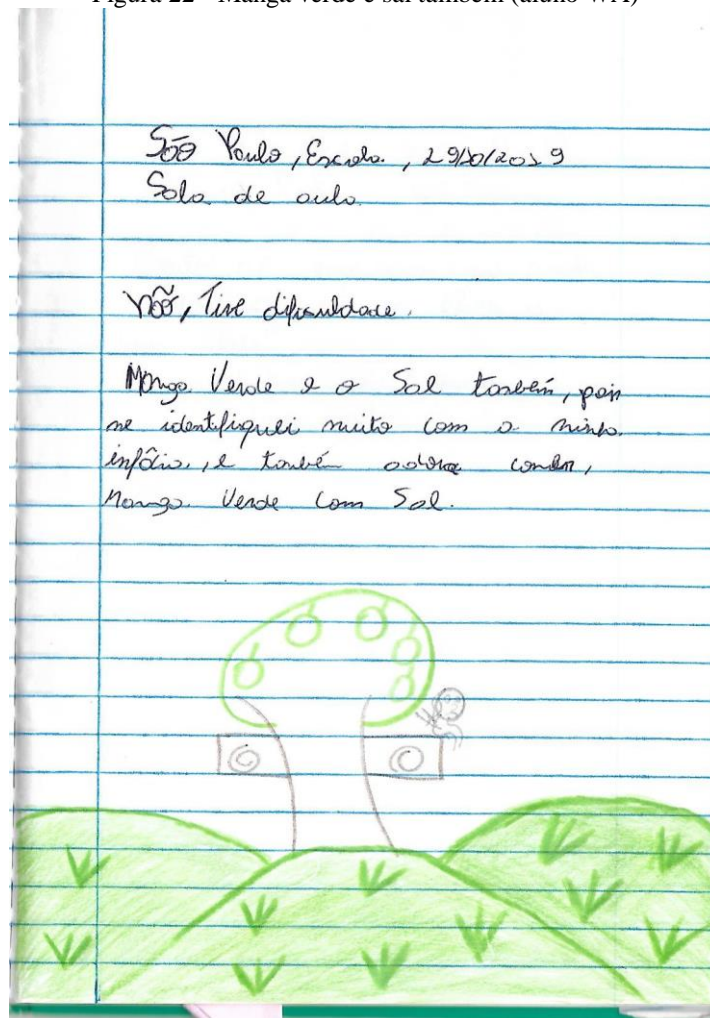 Figura 22 - Manga verde e sal também (aluno WA)
São Paulo, Escola, 29/10/2019
Sala de aula
Não, Tive dificuldade.
Manga Verde e o Sal também, pois
me identifiquei muito com a minha
infâcia, e também adorva comer,
Manga Verde com Sal.